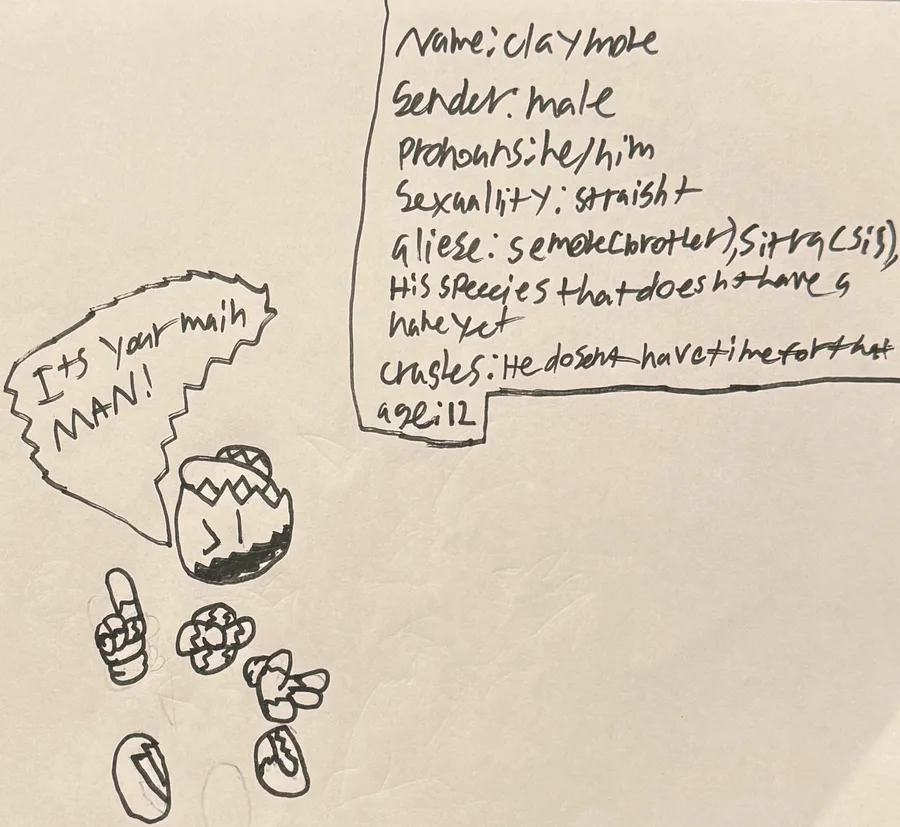 Name: claymore
Gender: male
Pronouns: he/him
Sexuallity: straight
aliese: semore(brother), sitra(sis),
His speecies that doesn't have a
name yet
crushes: He dosent have time for that
age: 12
It's your main
MAN!